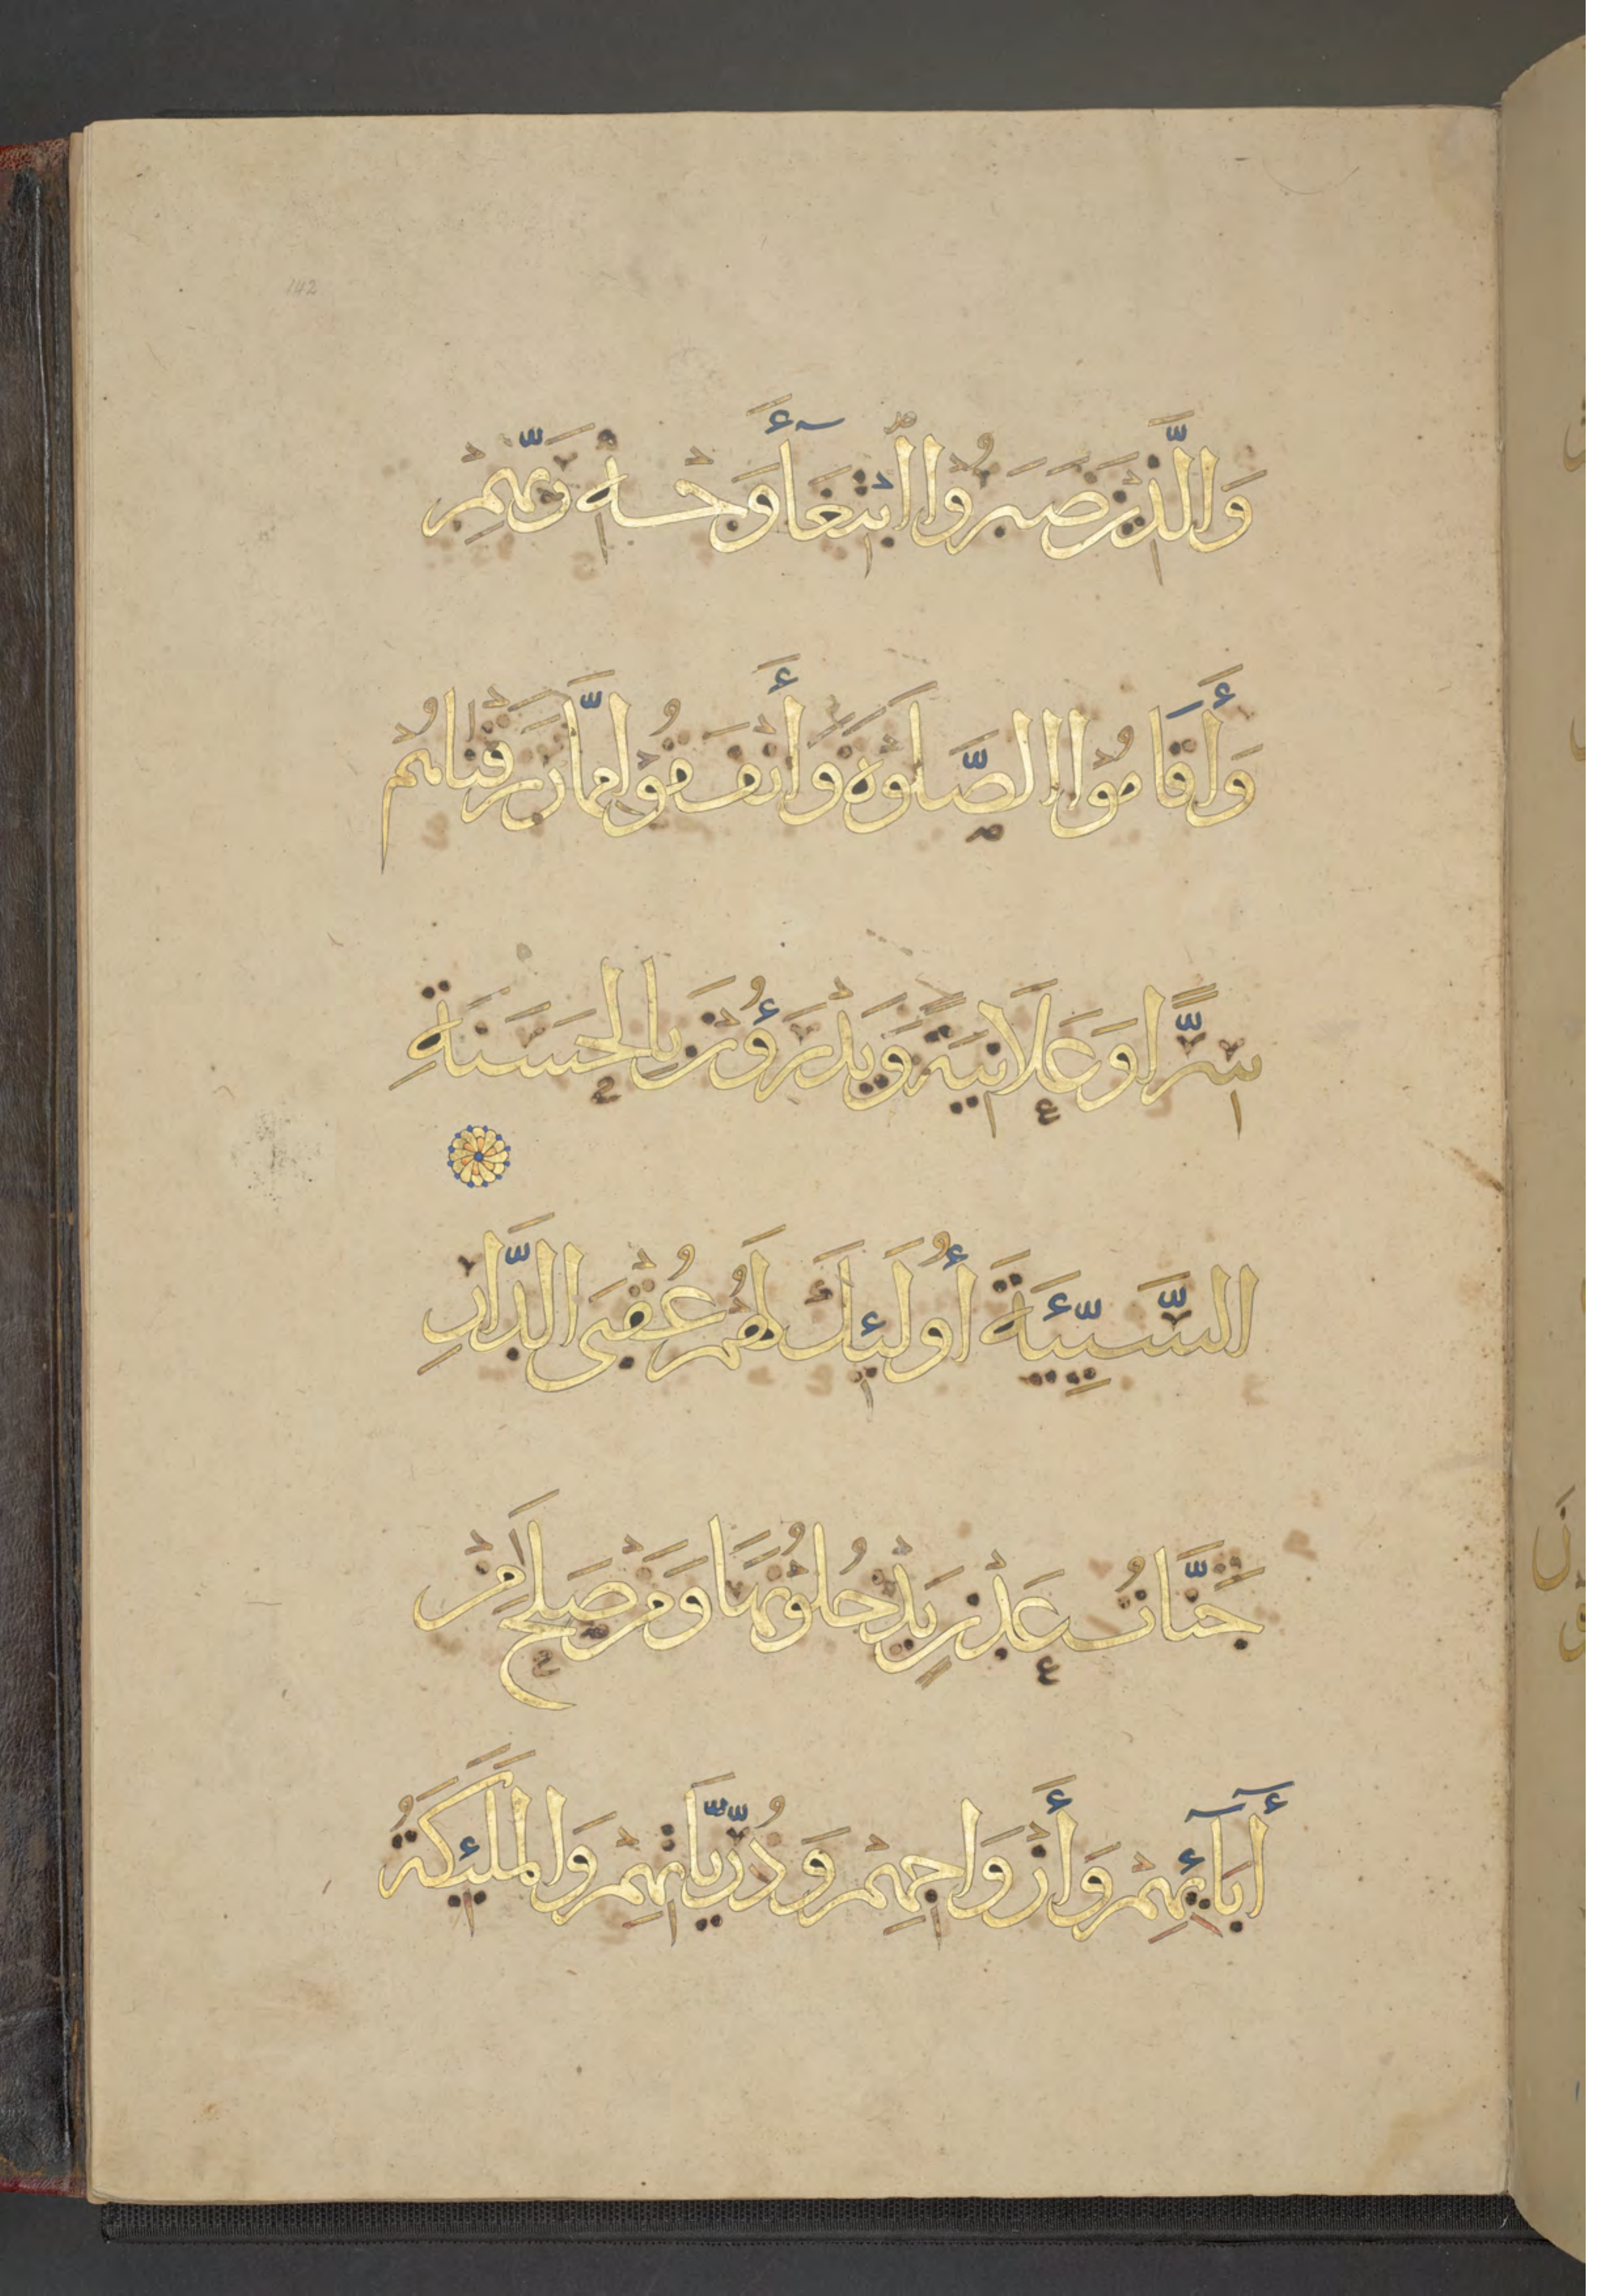 142
وَالَّذِينَ صَبَرُوا ابْتِغَآءَ وَجْهِ رَبِّهِمْ
وَأَقَامُوا الصَّلَوٰةَ وَأَنْفَقُوْا مِمَّا رَزَقْنَاهُمْ
سِرًّا وَعَلَانِيَةً وَيَدْرَؤُنَ بِالْحَسَنَةِ
السَّيِّئَةَ أُولَئِكَ لَهُمْ عُقْبَى الدَّارِ
جَنَّاتُ عَدْنٍ يَدْخُلُونَهَا وَمَنْ صَلَحَ مِنْ
أٓبَآئِهِمْ وَأَزْوَاجِهِمْ وَذُرِّيَّاتِهِمْ وَالْمَلَئِكَةُ